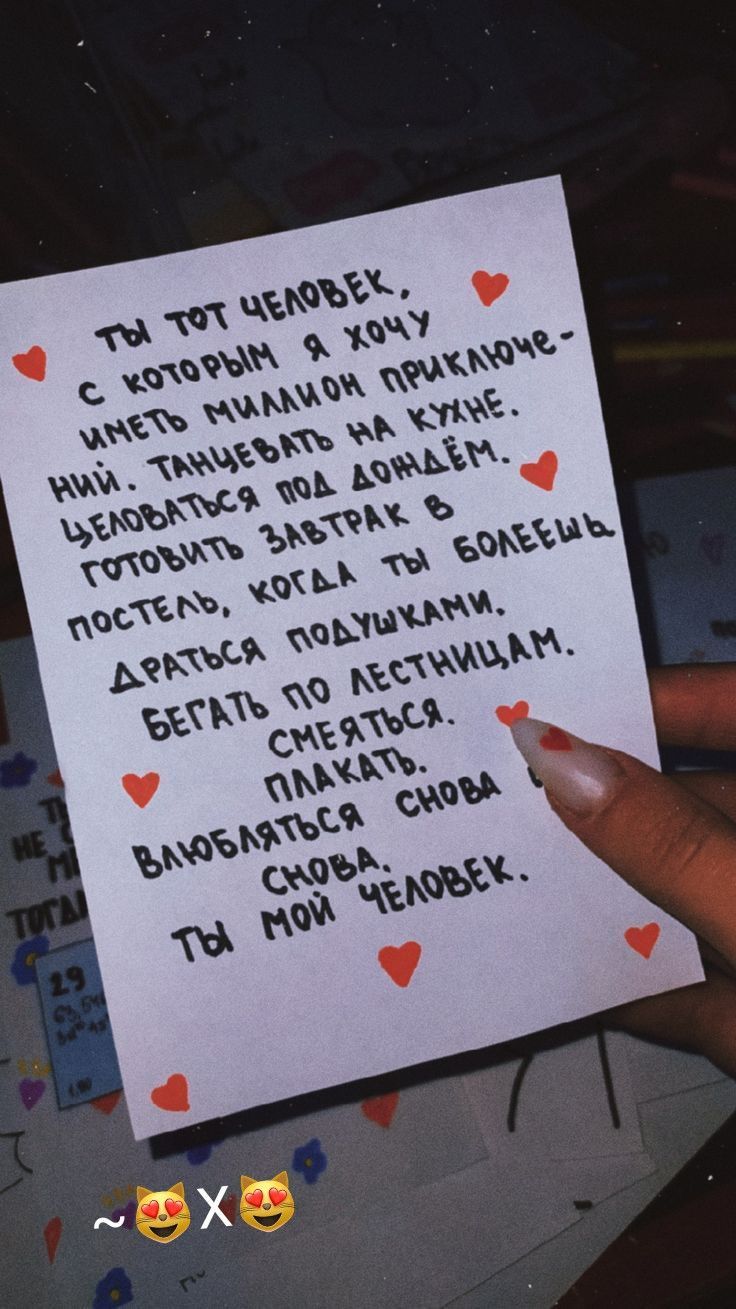 ТЫ ТОТ ЧЕЛОВЕК,
С КОТОРЫМ Я ХОЧУ
ИМЕТЬ МИЛЛИОН ПРИКЛЮЧЕ-
НИЙ. ТАНЦЕВАТЬ НА КУХНЕ.
ЦЕЛОВАТЬСЯ ПОД ДОЖДЁМ.
ГОТОВИТЬ ЗАВТРАК В
ПОСТЕЛЬ, КОГДА ТЫ БОЛЕЕШЬ
ДРАТЬСЯ ПОДУШКАМИ.
БЕГАТЬ ПО ЛЕСТНИЦАМ.
СМЕЯТЬСЯ.
ПЛАКАТЬ.
ВЛЮБЛЯТЬСЯ СНОВА
СНОВА.
ТЫ МОЙ ЧЕЛОВЕК.
НЕ
29
~😻X😻